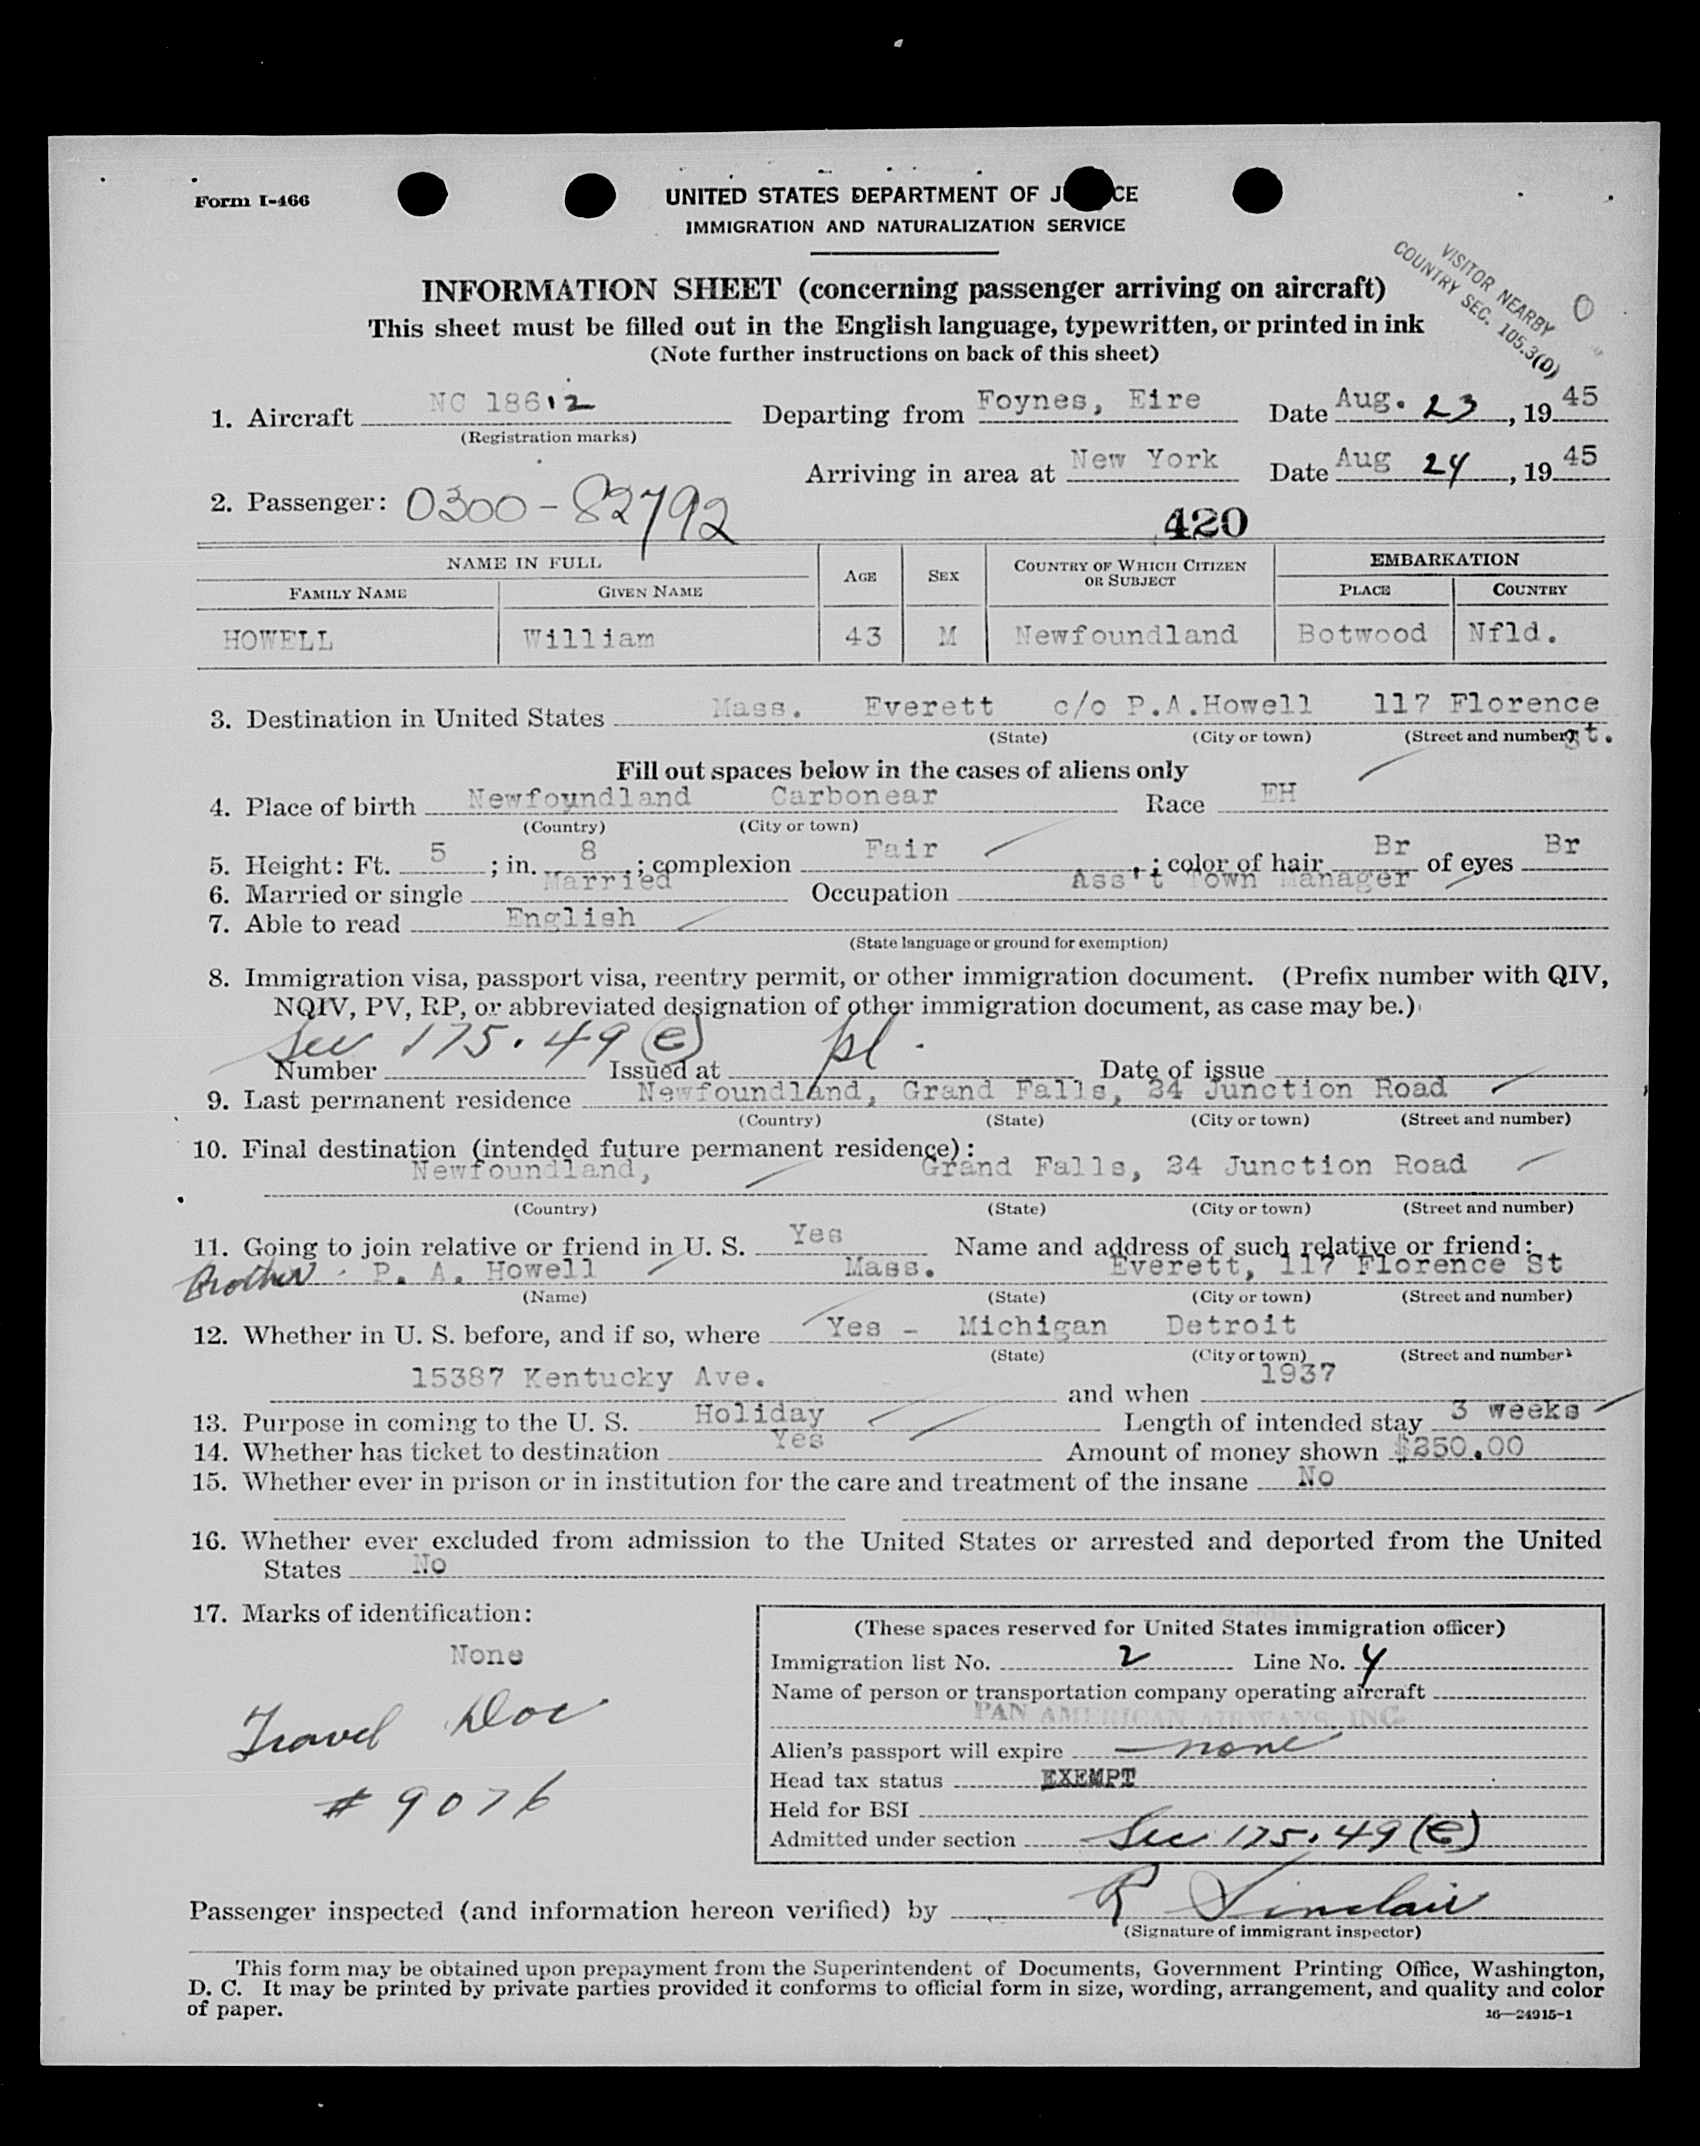 Form I-466
UNITED STATES DEPARTMENT OF J CE
IMMIGRATION AND NATURALIZATION SERVICE
VISITOR NEARBY
COUNTRY SEC. 105.3(D)
INFORMATION SHEET (concerning passenger arriving on aircraft)
This sheet must be filled out in the English language, typewritten, or printed in ink
(Note further instructions on back of this sheet)
1. Aircraft NC 18612 Departing from Foynes, Eire Date Aug. 23, 1945
(Registration marks)
Arriving in area at New York Date Aug 24, 1945
2. Passenger: 0300-82792
420
NAME IN FULL AGE SEX COUNTRY OF WHICH CITIZEN OR SUBJECT EMBARKATION
FAMILY NAME GIVEN NAME PLACE COUNTRY
HOWELL William 43 M Newfoundland Botwood Nfld.
3. Destination in United States Mass. Everett c/o P.A.Howell 117 Florence
(State) (City or town) (Street and number) st.
Fill out spaces below in the cases of aliens only
4. Place of birth Newfoundland Carbonear Race EH
(Country) (City or town)
5. Height: Ft. 5; in. 8; complexion Fair; color of hair Br of eyes Br
6. Married or single Married Occupation Ass't Town Manager
7. Able to read English
(State language or ground for exemption)
8. Immigration visa, passport visa, reentry permit, or other immigration document. (Prefix number with QIV,
NQIV, PV, RP, or abbreviated designation of other immigration document, as case may be.)
Sec 175.49 (e) pl.
Number Issued at Date of issue
9. Last permanent residence Newfoundland, Grand Falls, 24 Junction Road
(Country) (State) (City or town) (Street and number)
10. Final destination (intended future permanent residence):
Newfoundland, Grand Falls, 24 Junction Road
(Country) (State) (City or town) (Street and number)
11. Going to join relative or friend in U. S. Yes Name and address of such relative or friend:
Brother. P. A. Howell Mass. Everett, 117 Florence St
(Name) (State) (City or town) (Street and number)
12. Whether in U. S. before, and if so, where Yes - Michigan Detroit
(State) (City or town) (Street and number)
15387 Kentucky Ave. and when 1937
13. Purpose in coming to the U. S. Holiday Length of intended stay 3 weeks
14. Whether has ticket to destination Yes Amount of money shown $250.00
15. Whether ever in prison or in institution for the care and treatment of the insane No
16. Whether ever excluded from admission to the United States or arrested and deported from the United
States No
17. Marks of identification:
None
Travel Doc
# 9076
(These spaces reserved for United States immigration officer)
Immigration list No. 2 Line No. 4
Name of person or transportation company operating aircraft
PAN AMERICAN AIRWAYS, INC.
Alien's passport will expire none
Head tax status EXEMPT
Held for BSI
Admitted under section Sec 175.49 (e)
Passenger inspected (and information hereon verified) by R Sinclair
(Signature of immigrant inspector)
This form may be obtained upon prepayment from the Superintendent of Documents, Government Printing Office, Washington,
D. C. It may be printed by private parties provided it conforms to official form in size, wording, arrangement, and quality and color
of paper.
16—24915-1